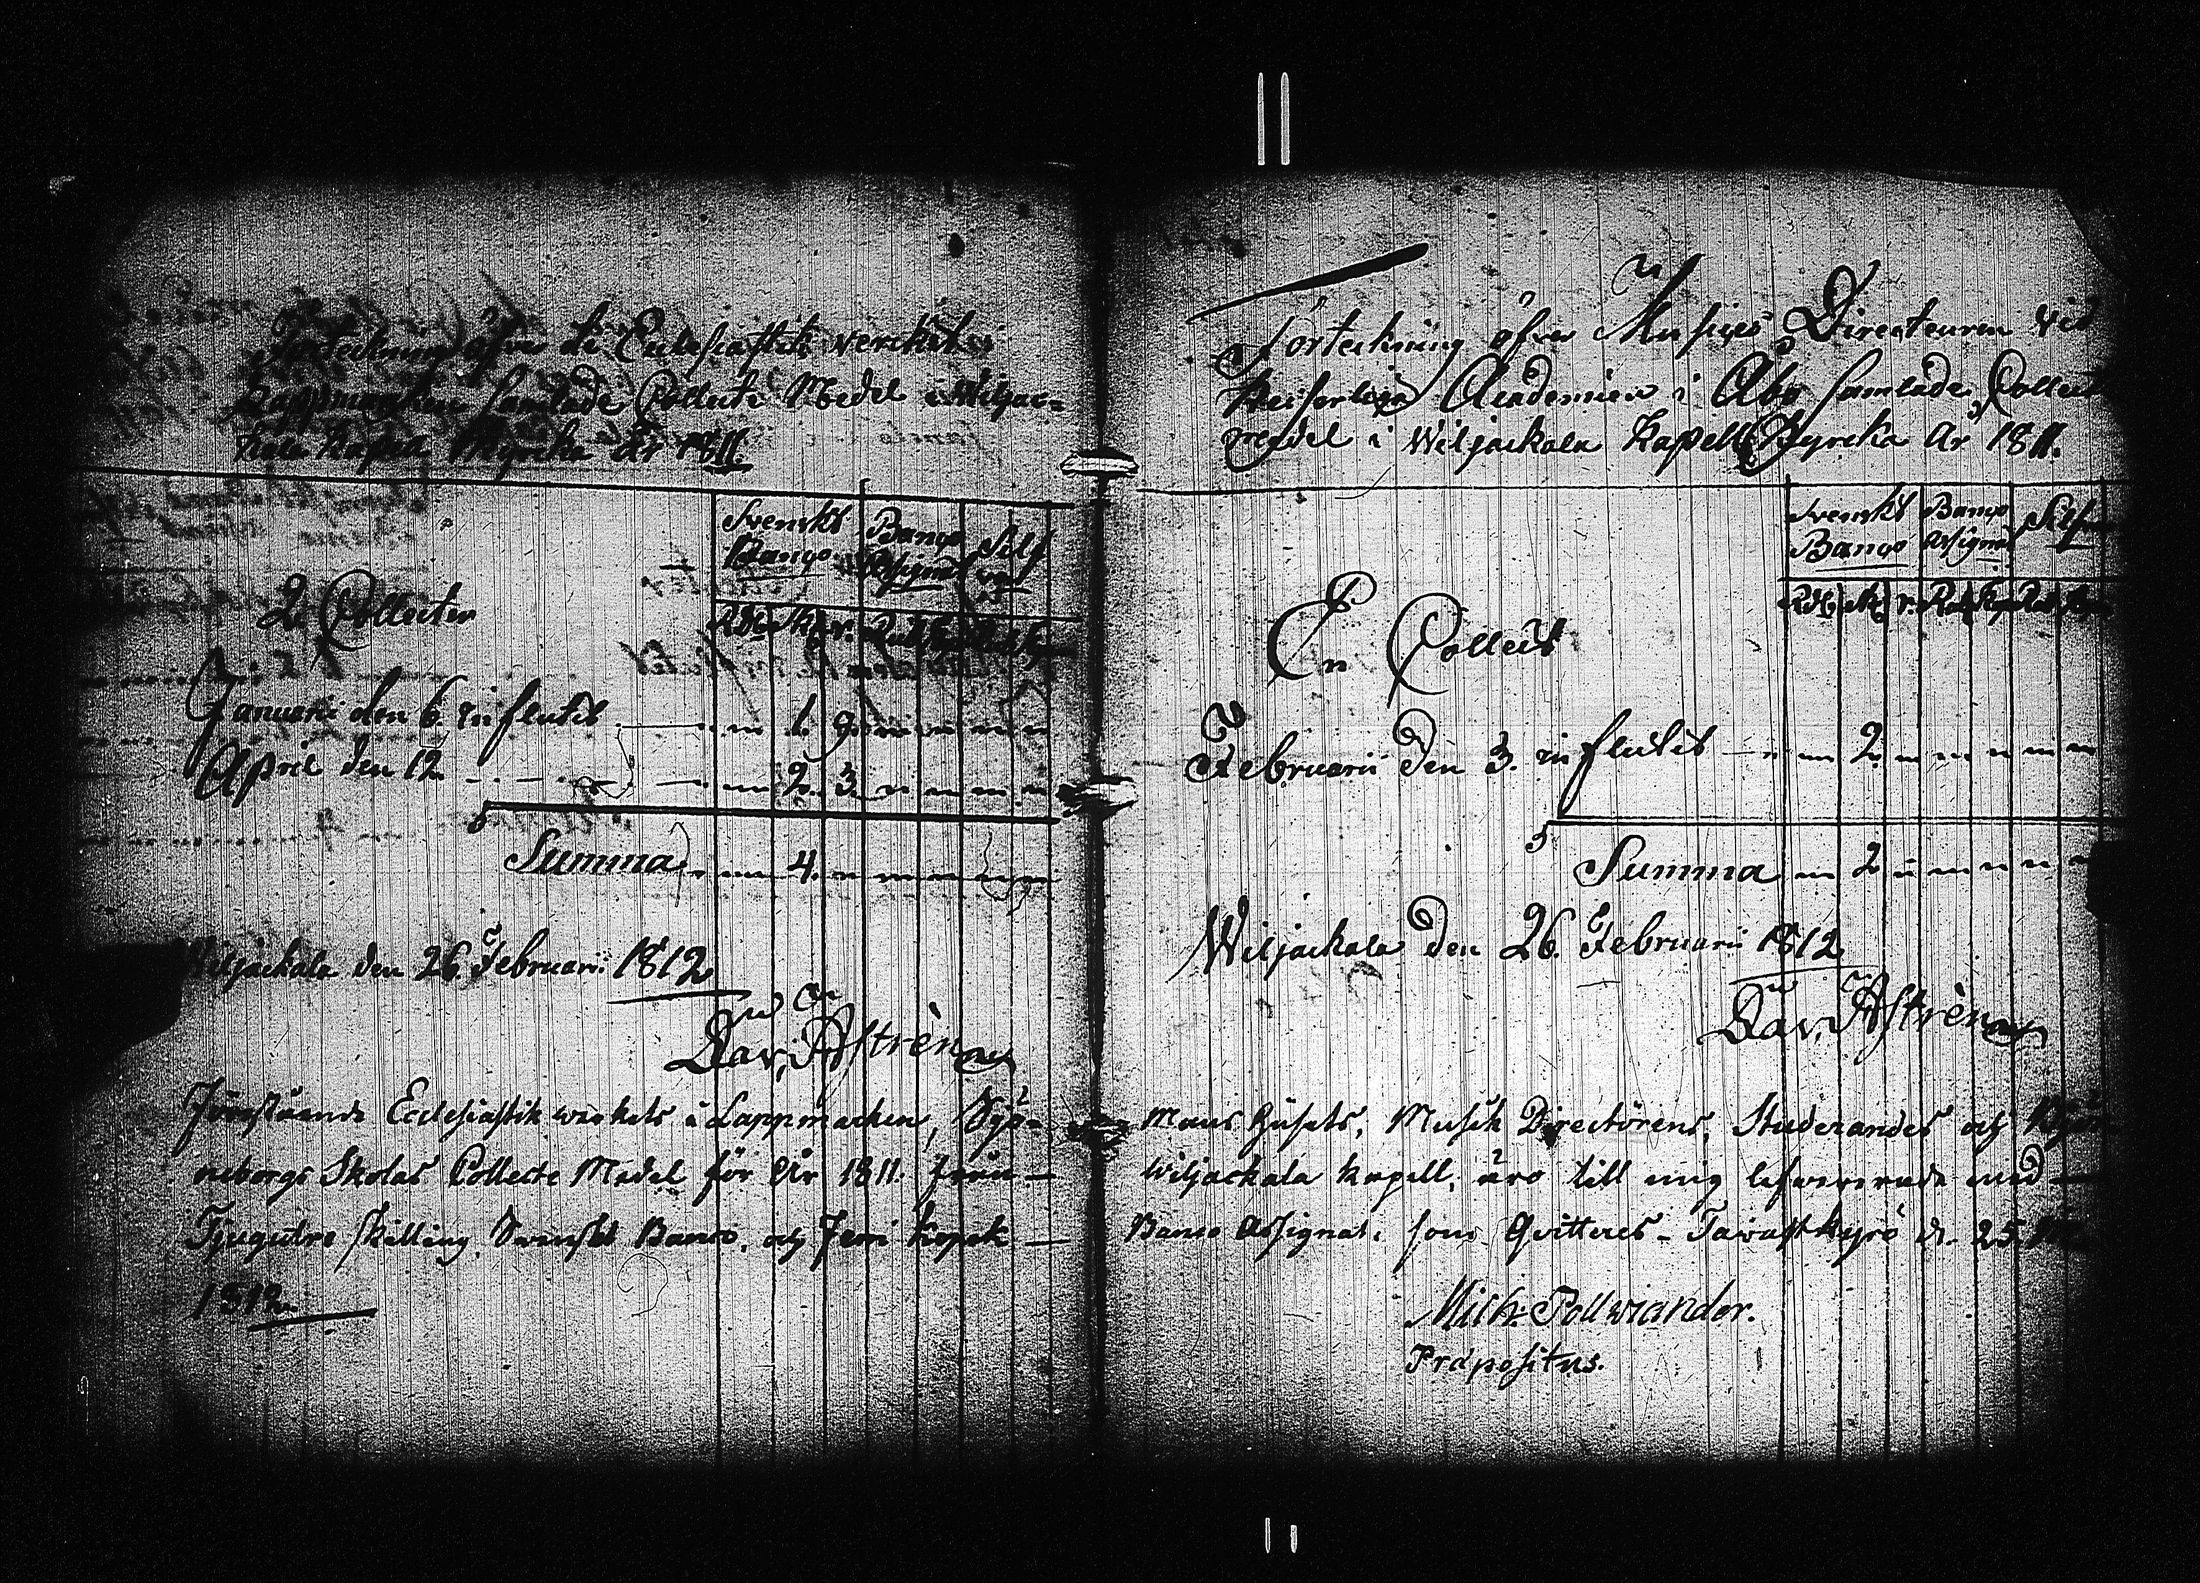 Förteckning öfver de Ecclesiastik verckets i
Lappmarken samlade Collecte Medel i Wiljac=
kala Kapell Kyrcka År 1811.
Svenskt Banco
Banco Assignat
Silf ver
2. Collecter
Januarii den 6. influtit 1. 9
April den 12. 2. 3
Summa 4.
Wiljackala den 26. Februarii 1812
Dav. Astrènius
Förestående Ecclesiastik werkets i Lappmarken,
neborgs Skolas Collecte Medel för År 1811.
Tjugutre skilling Svenskt Banco, och Kopek
1812.
Förteckning öfver Musices Directeuren vid
Keiserliga Academien i Åbo samlade Collect
medel i Wiljackala Kapell Kyrcka År 1811.
Svenskt Banco
Banco Assignat
Silf
En Collect
Februarii den 3. influtit 2.
Summa 2
Wiljackala den 26. Februarii 1812
Dav. Astrènius
Musik Directörens, Studerandes och
Wiljackala Kapell, äro till mig lefvererade med
Banco Assignat. som Qvitteres. Tavastkyrö d. 25.
Mich. Pollwiander.
Præpositus.